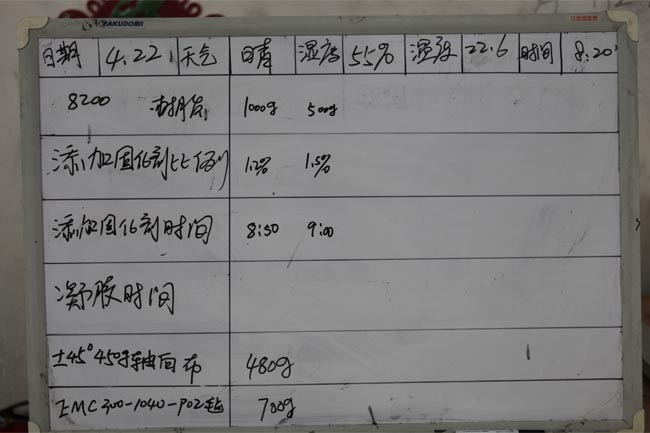 YAKUDO
日期 4.22 天气 日青 湿度 55% 温度 22.6 时间 8:20
8200 树脂 1000g 500g
添加固化剂比例 1.2% 1.5%
添加固化剂时间 8:50 9:00
凝胶时间
±45° 轴向布 480g
EMC 300-1040-P02毡 700g